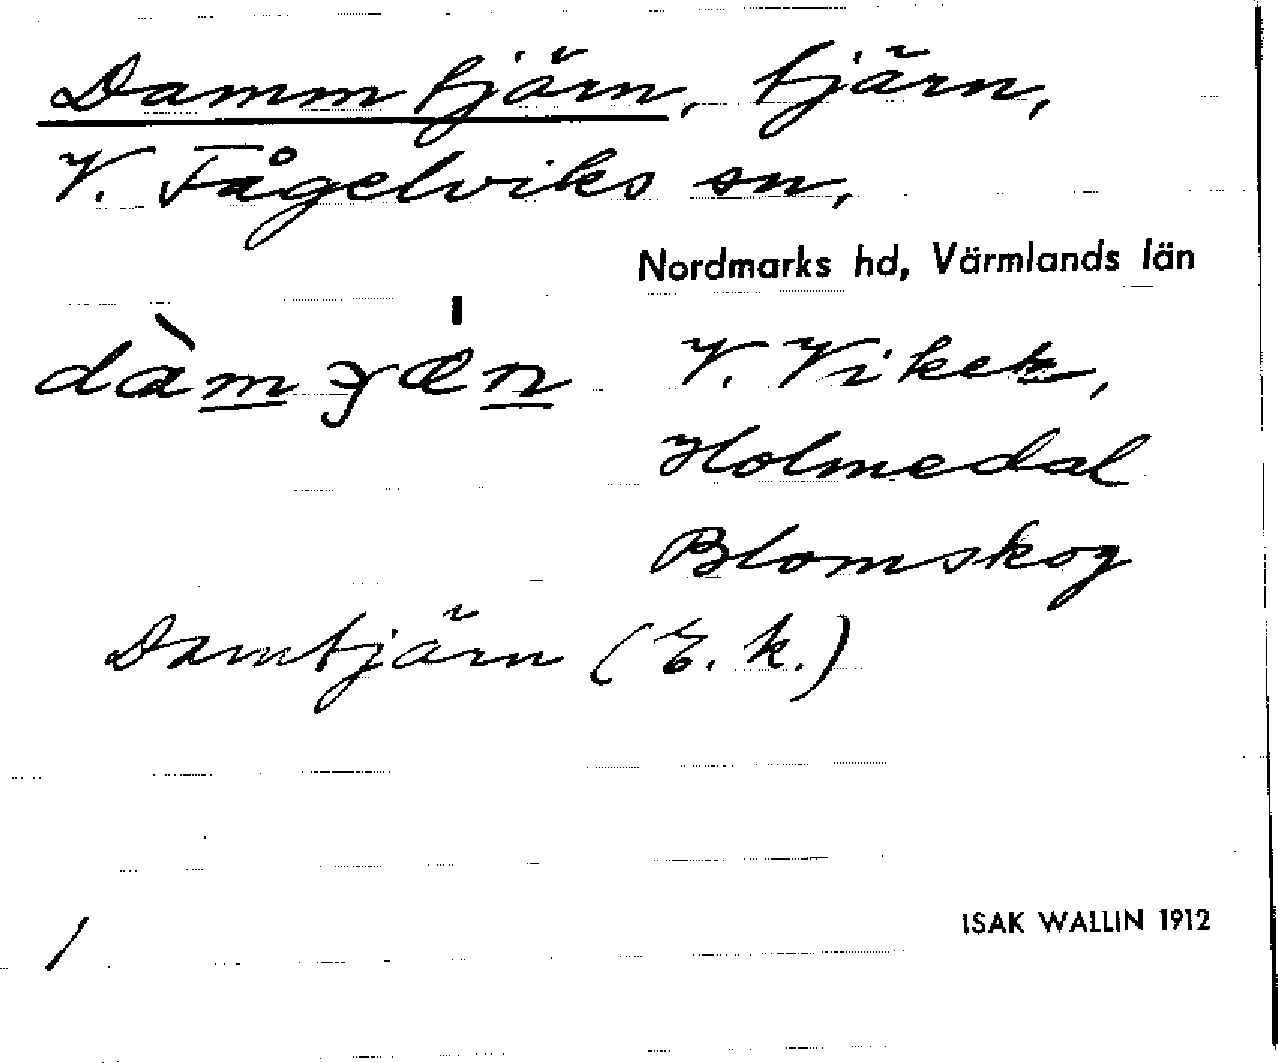 Dammtjärn, tjärn,
V. Fågelviks sn,
Nordmarks hd, Värmlands län
V. Viker,
Holmedal
Blomskog
Damtjärn (E. k.)
/
ISAK WALLIN 1912